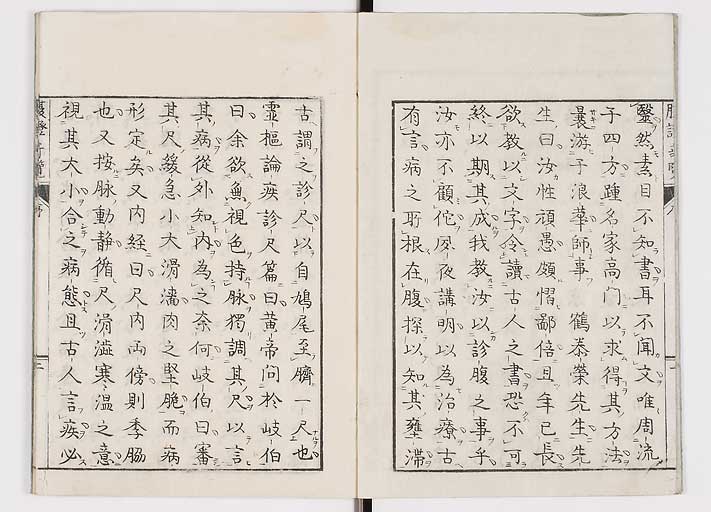 毉然素目不知書耳不聞文唯周流
于四方踵名家高門以求得其方法
曩游于浪華師事鶴泰榮先生先
生曰汝性頑愚頗慴鄙倍且年已長
欲教以文字令讀古人之書恐不可
終以期其成我教汝以診腹之事乎
汝亦不顧佗夙夜講明以為治療古
有言病之所根在腹探以知其壅滯
古謂之診尺以自鳩尾至臍一尺也
靈樞論疾診尺篇曰黃帝問於岐伯
曰余欲無視色持脉獨調其尺以言
其病從外知內為之奈何岐伯曰審
其尺緩急小大滑濇肉之堅脆而病
形定矣又內經曰尺內兩傍則季脇
也又按脉動静循尺滑濇寒溫之意
視其大小合之病態且古人言疾必